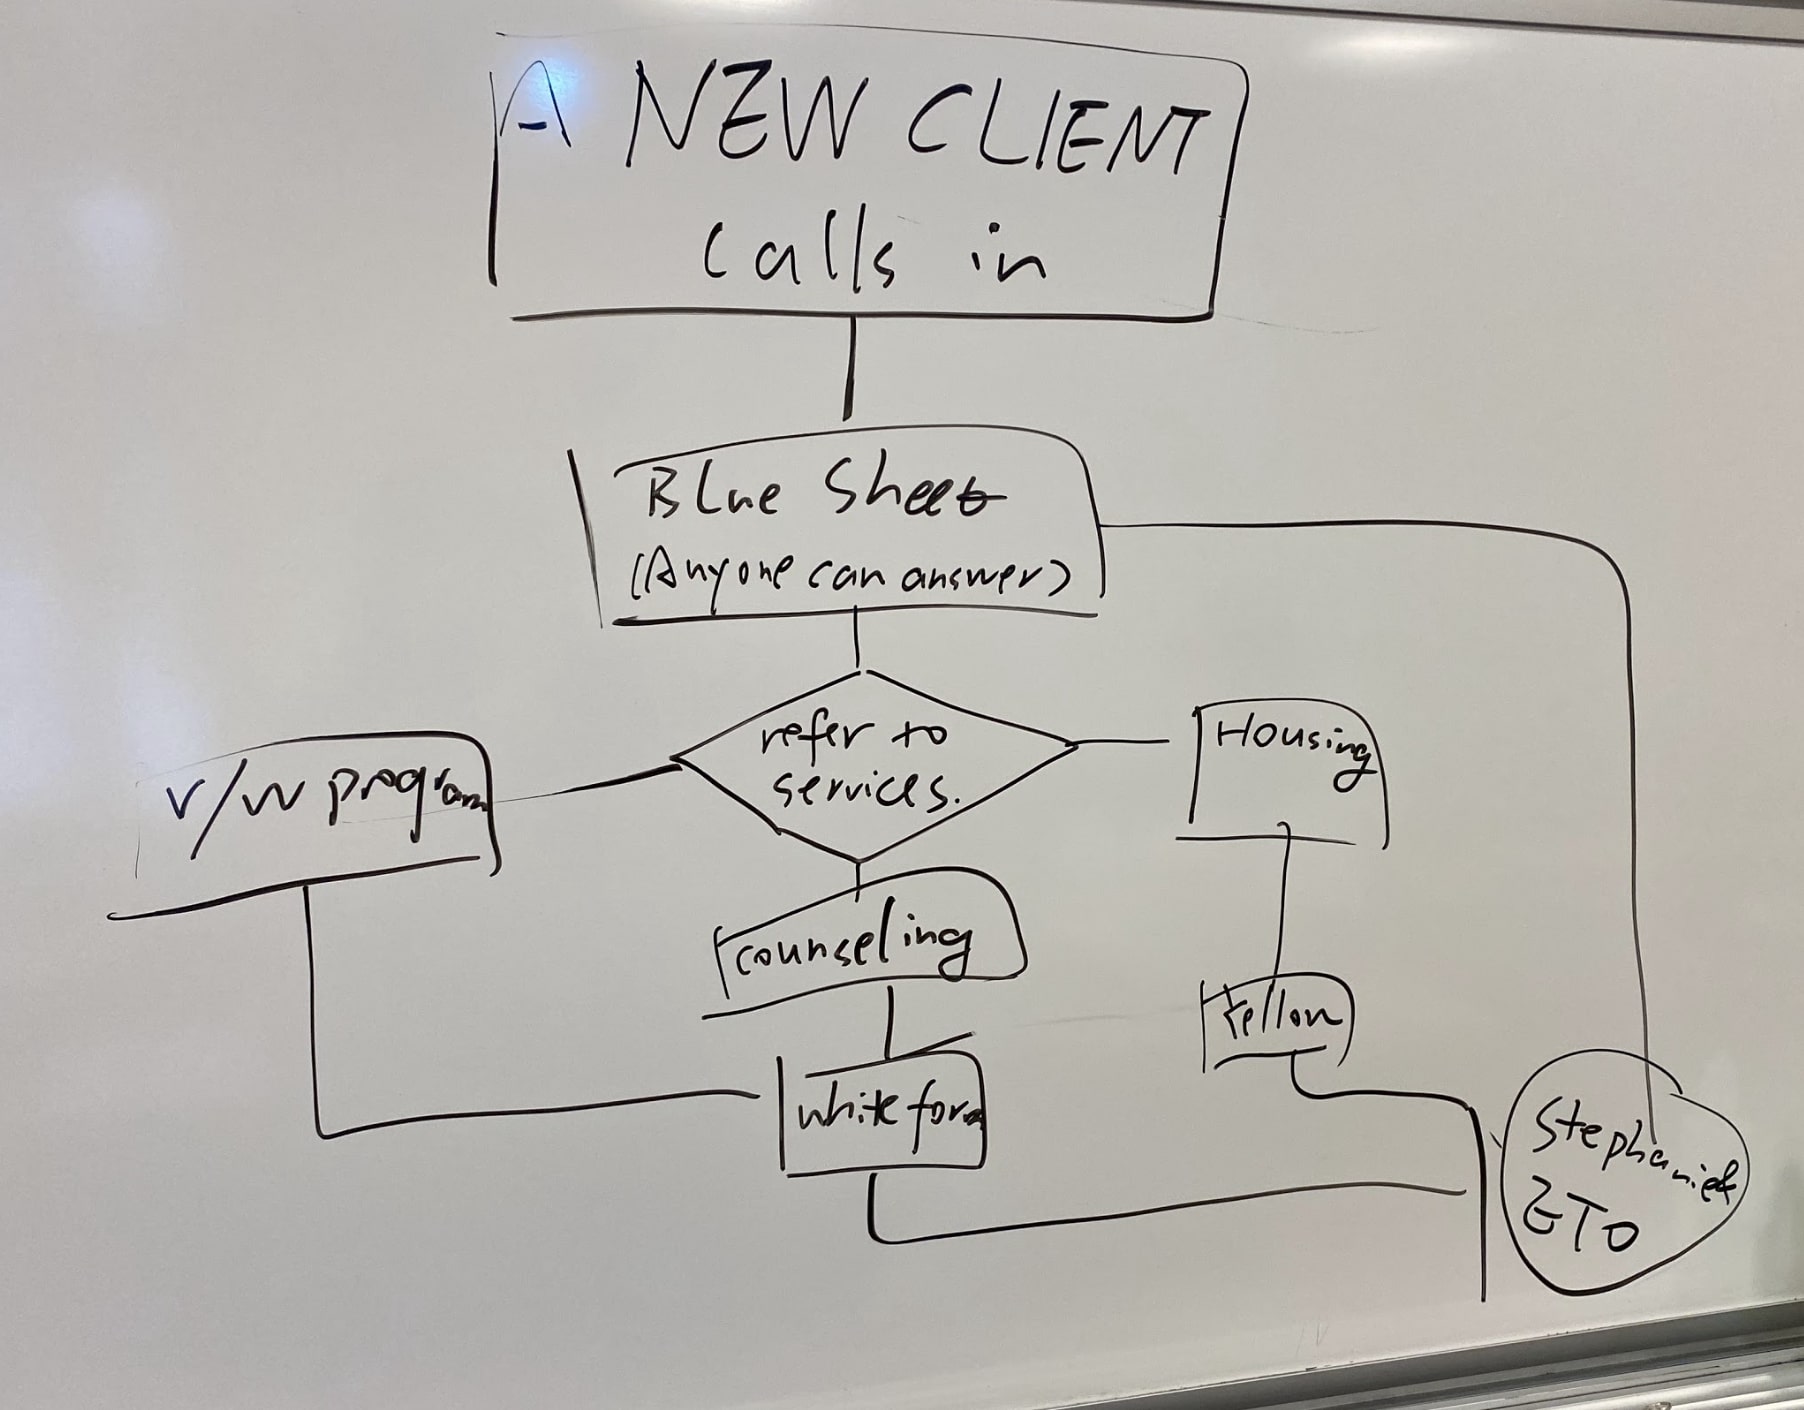 A NEW CLIENT
calls in
Blue Sheet
(Anyone can answer)
refer to
services.
V/W program
Housing
counseling
Yellow
white form
Stephanie
ETO